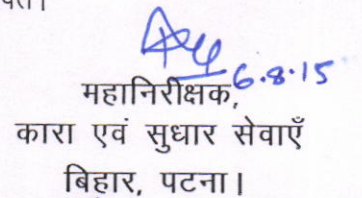 6.8.15
महानिरीक्षक,
कारा एवं सुधार सेवाएँ
बिहार, पटना।